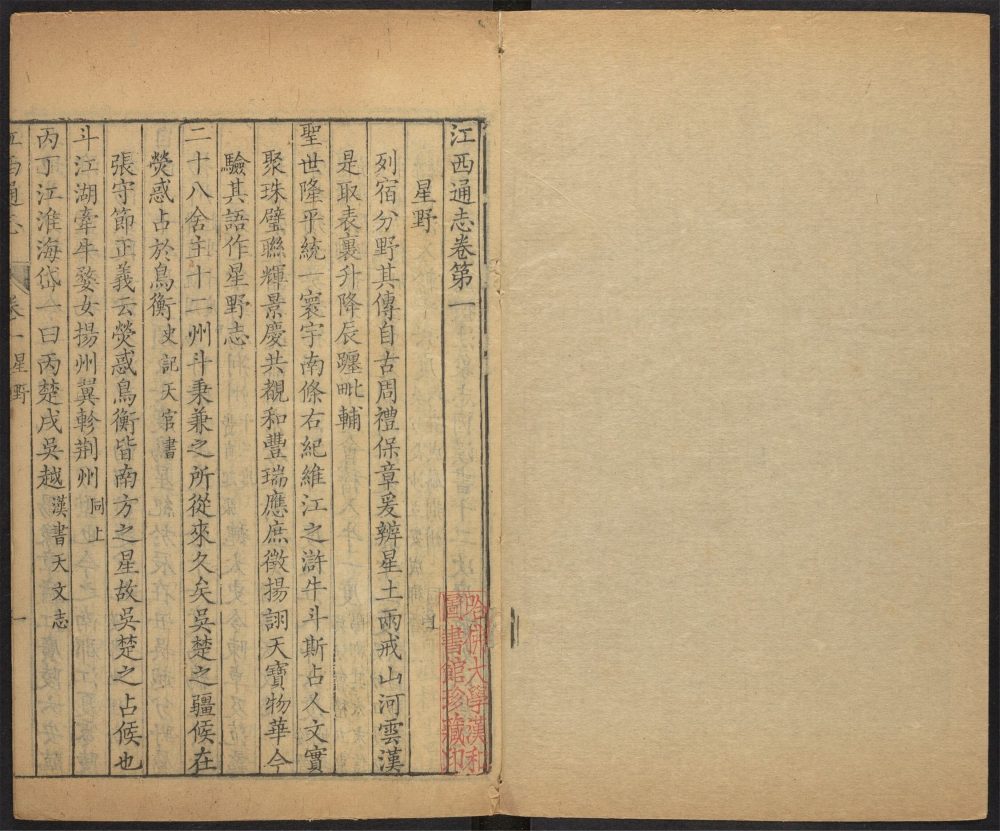 江西通志卷第一
星野
列宿分野其傳自古周禮保章爰辨星土兩戒山河雲漢
是取表裏升降辰躔毗輔
聖世隆平統一寰宇南條右紀維江之滸牛斗斯占人文實
聚珠璧聯輝景慶共覩和豐瑞應庶徵揚詡天寶物華今
驗其語作星野志
二十八舍主十二州斗秉兼之所從來久矣吳楚之疆候在
熒惑占於鳥衡史記天官書
張守節正義云熒惑鳥衡皆南方之星故吳楚之占候也
斗江湖牽牛婺女揚州翼軫荆州同上
丙丁江淮海岱一曰丙楚戌吳越漢書天文志
江西通志 卷一 星野 一
哈佛大學漢和
圖書館珍藏印